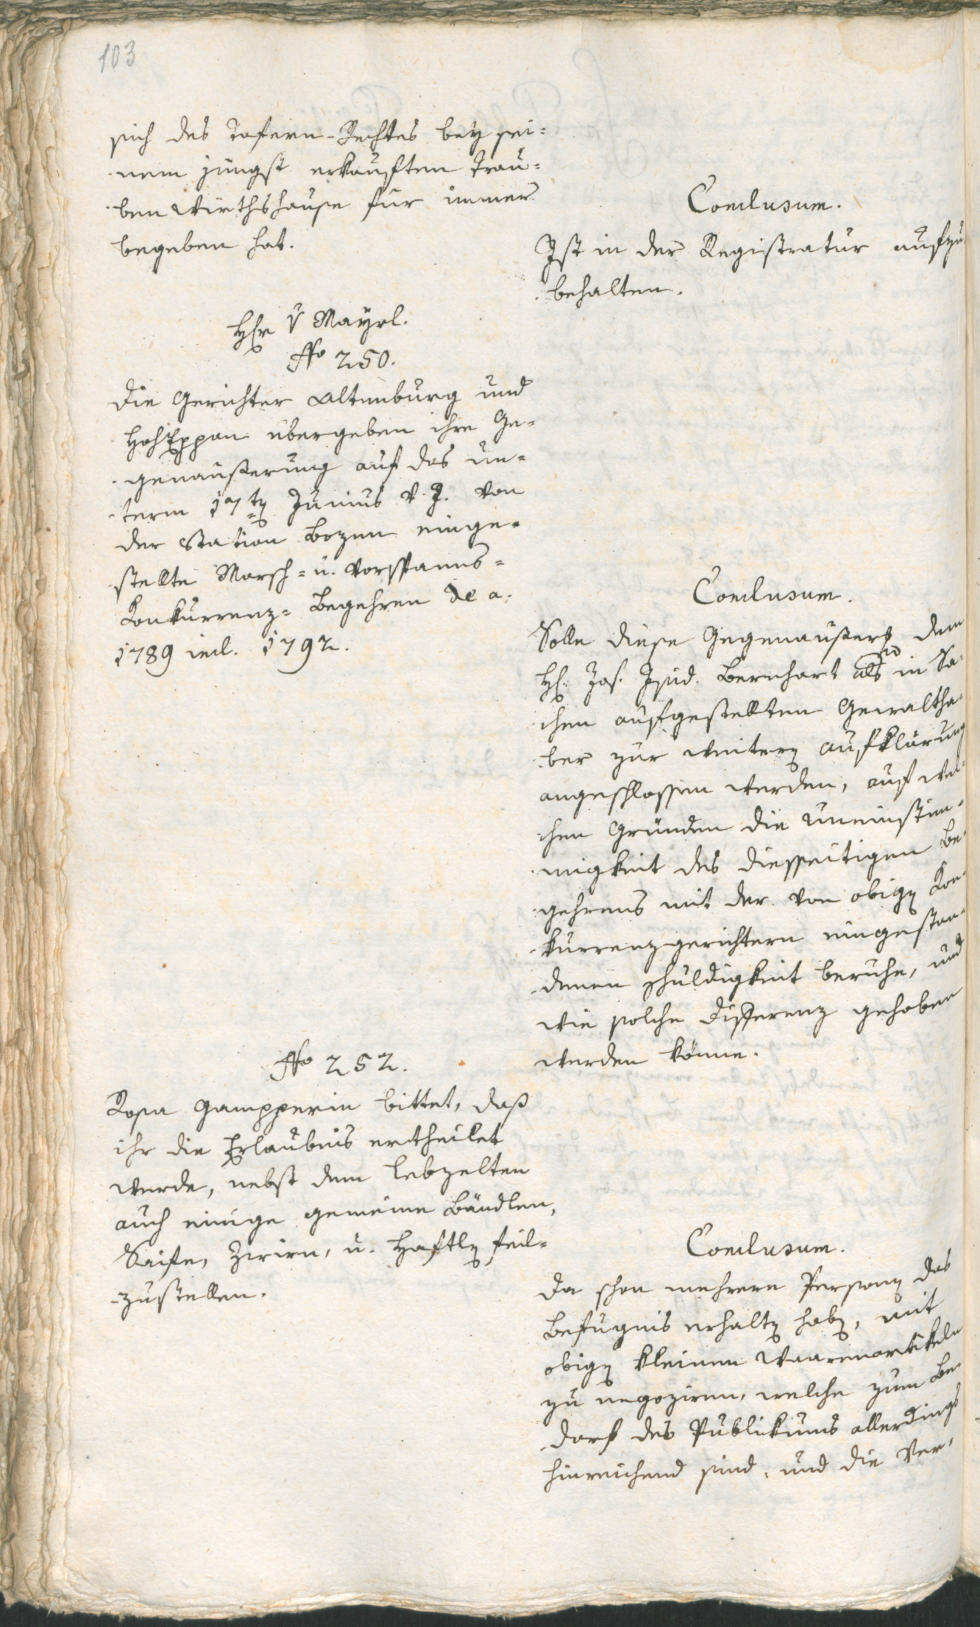 103
sich des Tafern-Rechtes bey sei-
nem jüngst erkauften Trau-
benwirthshause für immer
begeben hat.
Conclusum.
Ist in der Registratur aufzu
behalten.
Hr v Mayrl.
No 250.
Die Gerichter Altenburg und
HohEppan übergeben ihre Ge-
genäußerung auf das un-
term 17ten Junius v. J. von
der Station Bozen einge-
stellte Marsch- u. Vorspanns-
Konkurrenz-Begehren de a.
1789 incl. 1792.
Conclusum.
Solle diese Gegenäußerg dem
H. Jos. Isid. Bernhart als in Sa
chen aufgestellten Gewaltha
ber zur weitern Aufklärung
angeschlossen werden, auf wel
chen Gründen die Uneinstim-
migkeit des diesseitigen Be
gehrens mit der von obigen Kon
kurrenzgerichtern eingestan-
denen Schuldigkeit beruhe, und
wie solche Differenz gehoben
werden könne.
No 252.
Rosa Gampperin bittet, daß
ihr die Erlaubnis ertheilet
werde, nebst dem Lebzelten
auch einige gemeine Bändlen,
Saife, Zwirn, u. Haftln feil-
zustellen.
Conclusum.
Da schon mehrere Personen das
Befugnis erhalten haben, mit
obigen kleinen Waarenartikeln
zu negoziren, welche zum Be
darf des Publikums allerdings
hinreichend sind, und die Ver-